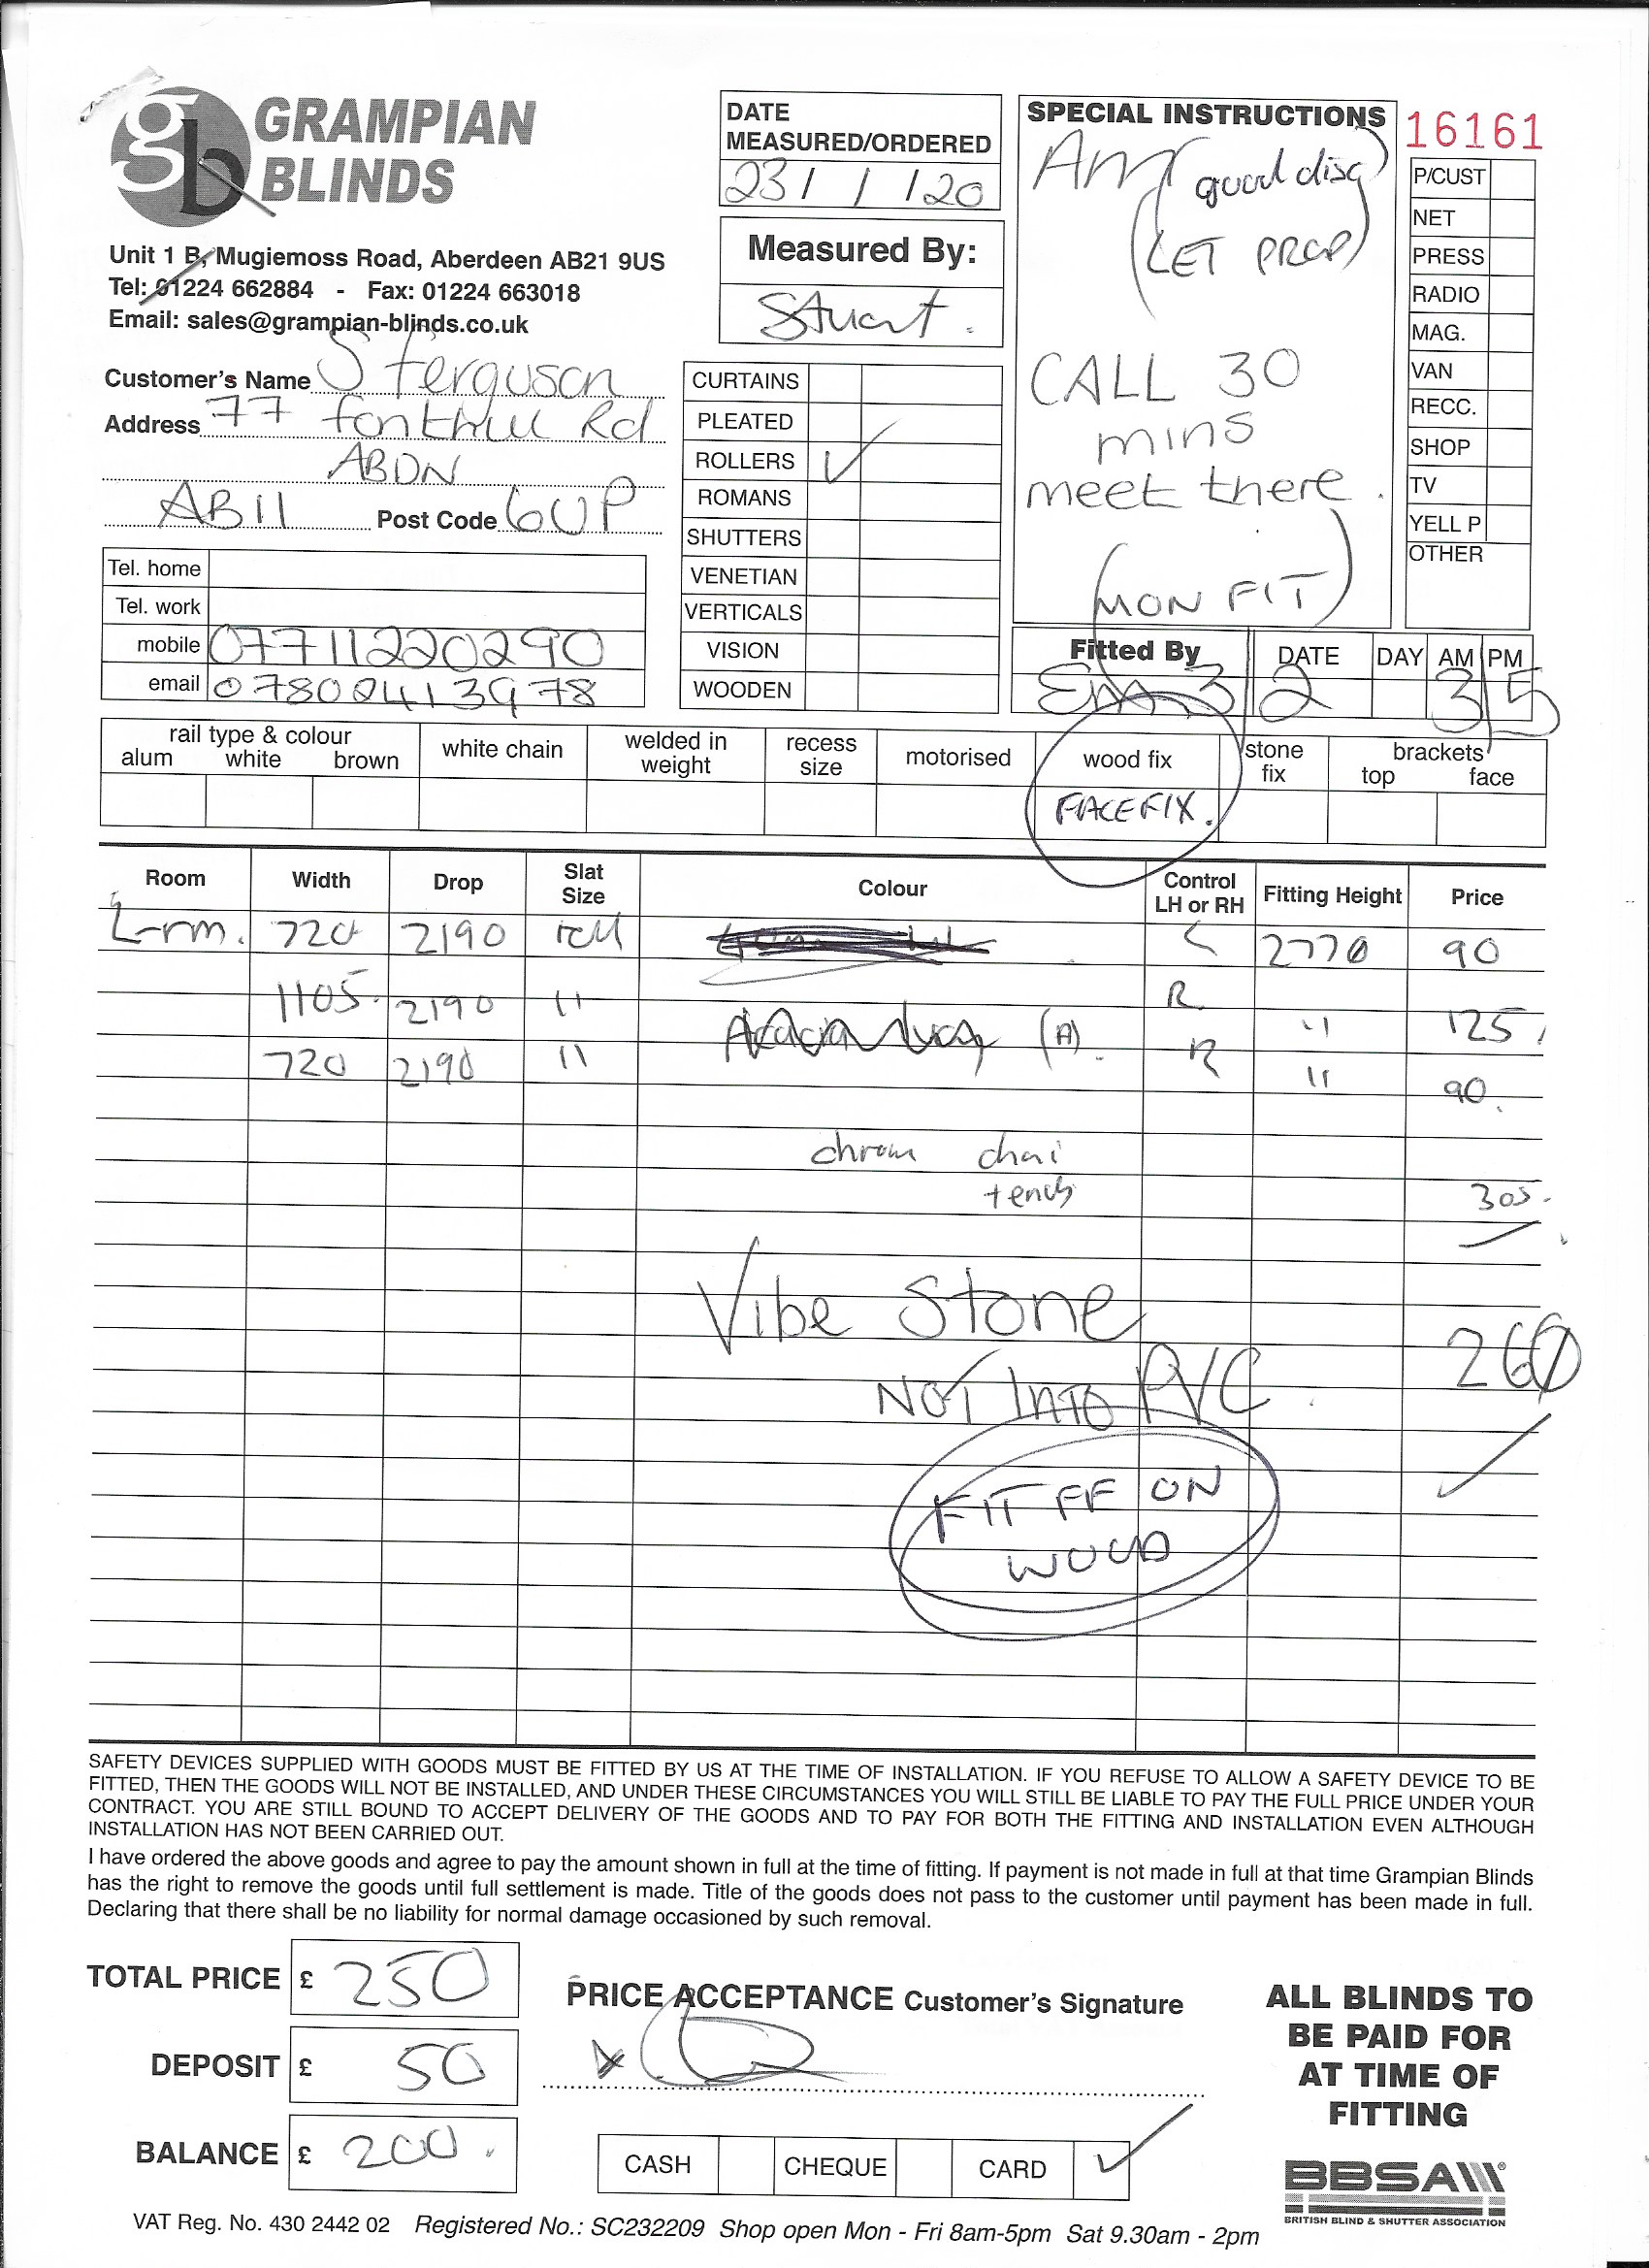 GRAMPIAN
BLINDS
Unit 1 B, Mugiemoss Road, Aberdeen AB21 9US
Tel: 01224 662884 - Fax: 01224 663018
Email: sales@grampian-blinds.co.uk
DATE
MEASURED/ORDERED
23/ 1 /20
Measured By:
Stuart.
SPECIAL INSTRUCTIONS
AM (good disc)
(LET PROP)
CALL 30
mins
meet there.
(MON FIT)
16161
P/CUST
NET
PRESS
RADIO
MAG.
VAN
RECC.
SHOP
TV
YELL P
OTHER
Customer's Name S Ferguson
Address 77 Fonthill Rd
ABDN
AB11 Post Code 6UP
Tel. home
Tel. work
mobile 07711220290
email 07802413978
CURTAINS
PLEATED
ROLLERS ✓
ROMANS
SHUTTERS
VENETIAN
VERTICALS
VISION
WOODEN
Fitted By DATE DAY AM PM
3/2 3/5
rail type & colour
alum white brown
white chain
welded in weight
recess size
motorised
wood fix
stone fix
brackets
top face
FACEFIX.
Room Width Drop Slat Size Colour Control LH or RH Fitting Height Price
L-rm. 720 2190 roll L 2770 90
1105 2190 11 R 11 125
Acacia (A)
720 2190 11 R 11 90
chrom chai
305
Vibe Stone
260
NOT INTO PVC
FIT FF ON
WOOD
SAFETY DEVICES SUPPLIED WITH GOODS MUST BE FITTED BY US AT THE TIME OF INSTALLATION. IF YOU REFUSE TO ALLOW A SAFETY DEVICE TO BE
FITTED, THEN THE GOODS WILL NOT BE INSTALLED, AND UNDER THESE CIRCUMSTANCES YOU WILL STILL BE LIABLE TO PAY THE FULL PRICE UNDER YOUR
CONTRACT. YOU ARE STILL BOUND TO ACCEPT DELIVERY OF THE GOODS AND TO PAY FOR BOTH THE FITTING AND INSTALLATION EVEN ALTHOUGH
INSTALLATION HAS NOT BEEN CARRIED OUT.
I have ordered the above goods and agree to pay the amount shown in full at the time of fitting. If payment is not made in full at that time Grampian Blinds
has the right to remove the goods until full settlement is made. Title of the goods does not pass to the customer until payment has been made in full.
Declaring that there shall be no liability for normal damage occasioned by such removal.
TOTAL PRICE £ 250
DEPOSIT £ 50
BALANCE £ 200.
PRICE ACCEPTANCE Customer's Signature
CASH CHEQUE CARD ✓
ALL BLINDS TO
BE PAID FOR
AT TIME OF
FITTING
BBSA
BRITISH BLIND & SHUTTER ASSOCIATION
VAT Reg. No. 430 2442 02 Registered No.: SC232209 Shop open Mon - Fri 8am-5pm Sat 9.30am - 2pm